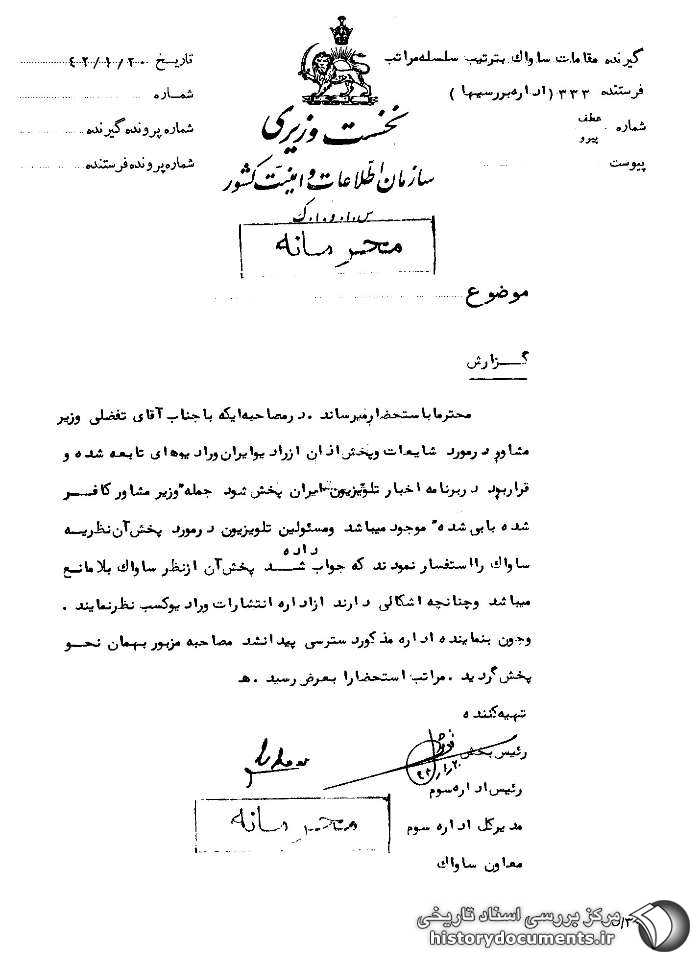 گیرنده مقامات ساواك بترتیب سلسله مراتب
فرستنده ۳۳۳ (اداره بررسیها)
شماره عطف
پیرو
پیوست
نخست وزیری
سازمان اطلاعات و امنیت کشور
س.ا.و.ا.ک
تاریخ ۴۲/۱/۲۰
شماره
شماره پرونده گیرنده
شماره پرونده فرستنده
محرمانه
موضوع
گزارش
محترما باستحضار میرساند . در مصاحبه ایکه با جناب آقای تفضلی وزیر
مشاور در مورد شایعات وپخش اذان از رادیو ایران ورادیوهای تابعه شده و
قرار بود در برنامه اخبار تلویزیون ایران پخش شود جمله "وزیر مشاور کافر
شده یا بی شده" موجود میباشد ومسئولین تلویزیون در مورد پخش آن نظریه
ساواك را استفسار نمودند که جواب داده شد پخش آن از نظر ساواك بلامانع
میباشد وچنانچه اشکالی دارند از اداره انتشارات ورادیو کسب نظر نمایند .
وچون بنماینده اداره مذکور دسترسی پیدا نشد مصاحبه مزبور بهمان نحو
پخش گردید . مراتب استحضارا بعرض رسید . هـ
تهیه کننده
رئیس بخش
رئیس اداره سوم
مدیرکل اداره سوم
معاون ساواك
محرمانه
مرکز بررسی اسناد تاریخی
historydocuments.ir